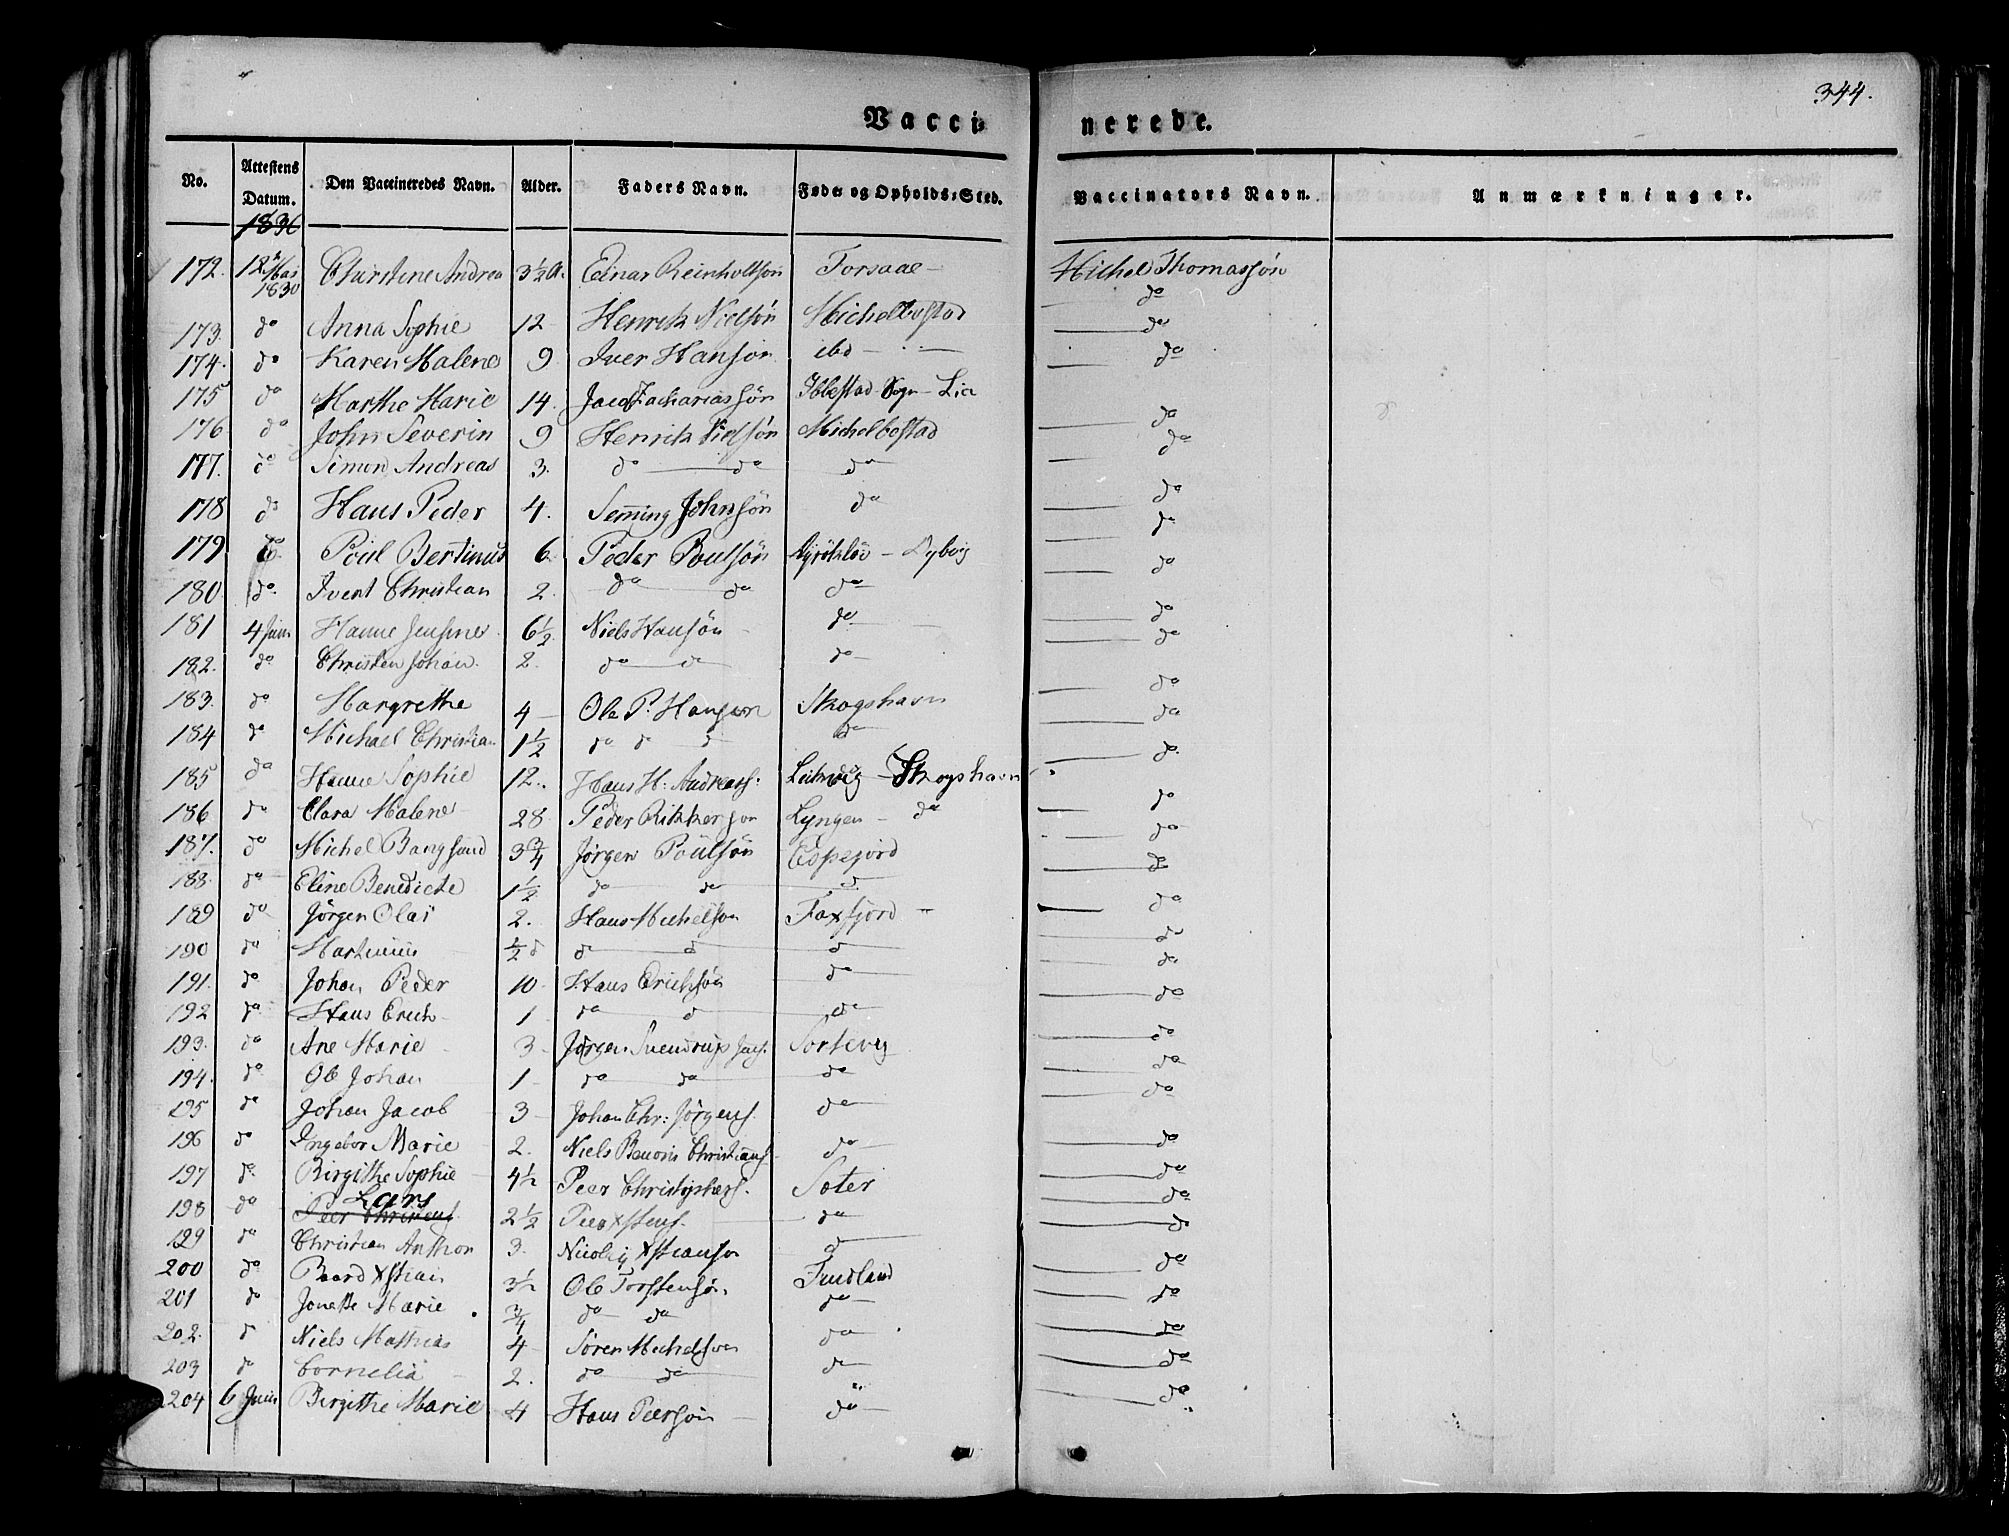 344.
Vaccinerede.
No. Attestens Datum. Den Vaccineredes Navn. Alder. Faders Navn. Føde og Opholds-Sted. Vaccinators Navn. Anmærkninger.
1830
172. 12 Mai 1830 Christine Andrea 3½ A. Einar Reinholtsøn Forsaae Michel Thomassøn
173. do Anna Sophie 12 Henrik Nielsøn Michelbostad do
174. do Karen Malene 9 Iver Hansøn ibd do
175 do Marthe Marie 14. Jacob Zachariassøn Ibbestad Sogn - Lia do
176 do John Severin 9 Henrik Nielsøn Michelbostad do
177. do Simon Andreas 3. do do do do
178 do Hans Peder 4. Johnsøn do do
179 do Poul Bertinus 6 Peder Poulsøn - Dybvig do
180 do Ivert Christian 2. do do do do
181 4 Juni Hanne 6½ Niels Hansøn do do
182. do Christen Johan. 2. do do do do
183. do Margrethe 4 Ole P. Hansen Skogshavn do
184 do Michael Christian 1½ do do d do do
185 do Hanne Sophie 12. Hans H: Andreass: - Skogshavn do
186 do Clara Malene 28 Peder Rikkersøn Lyngen - do do
187. do Michel Bangsund 3¾ Jørgen Poulsøn Espejord do
188 do Eline Benedicte 1½ do do d do
189 do Jørgen Olai 2. Hans Michelsøn Faxfjord do
190 do Martinus ½ d d d d do
191. do Johan Peder 10 Hans Erichsøn do do
192 do Hans Erich 1 do d do do
193. do Ane Marie 3 Jørgen Svendrup Jens. Sortevig do
194. do Ole Johan 1 do do do do
195 do Johan Jacob 3 Johan Chr: Jørgens. do do
196 do Ingebor Marie 2. Niels Christians. do do
197 do Birgithe Sophie 4½ Peer Christophers. Soter do
198 do Lars 2½ Peer Xstens. do do
199 do Christian Anthon 3. Nicolay Xstiansøn d do
200 do Baard Xstian 3½ Ole Torstensøn. Fundland do
201 do Jonette Marie ¾ do do do do
202. d Niels Mathias 4 Søren Michelsøn do do
203 do Cornelia 2. do do do do
204 6 Juni Birgithe Marie 4 Hans Peersøn do do